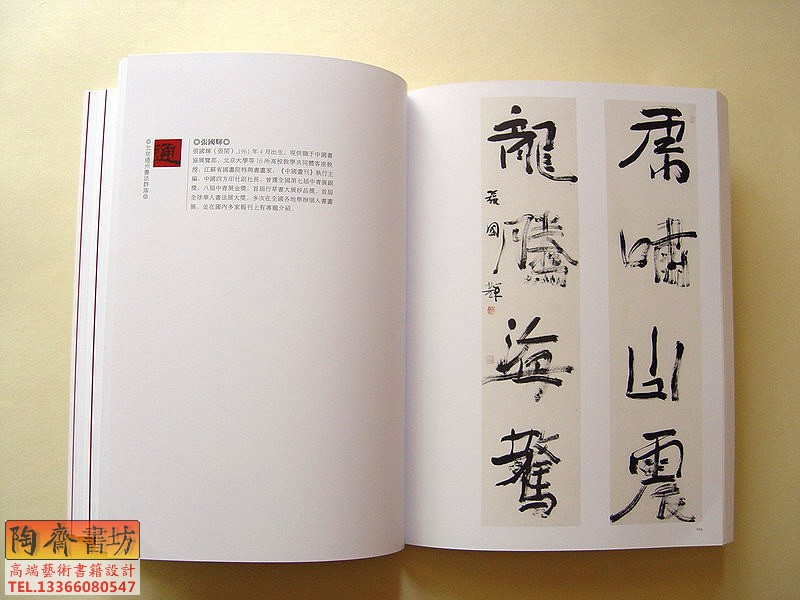 通
◎北京通州書法群落◎
◎張國輝◎
張國輝（張閑），1961年4月出生，現供職于中國書
協展覽部，北京大學等16所高校教學共同體客座教
授，江蘇省國畫院特聘書畫家，《中國書刊》執行主
編，中國四方印社副社長。曾獲全國第七屆中青展銀
獎、八屆中青展金獎，首屆行草書大展妙品獎，首屆
全球華人書法展大獎，多次在全國各地舉辦個人書畫
展，並在國內多家報刊上有專題介紹。
虎嘯山震
龍騰海驚
張國輝
陶齋書坊
高端藝術書籍設計
TEL.13366080547